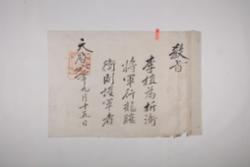 敎旨
李 為折衝
將軍行龍驤
衛副護軍者
天啓 年九月十五日